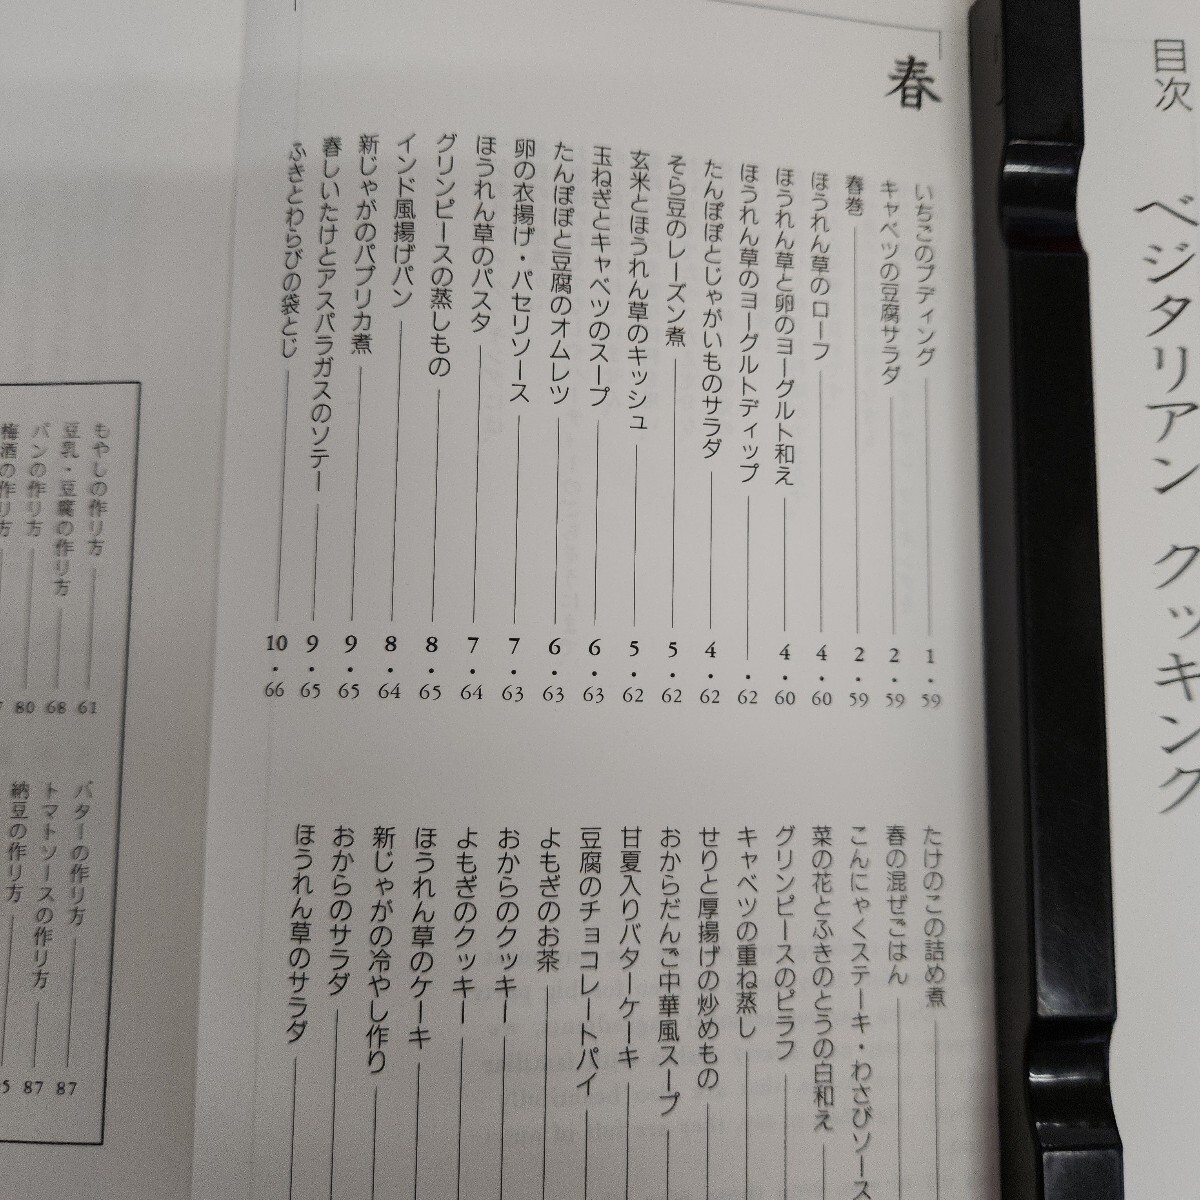 目次
ベジタリアン クッキング
春
いちごのプディング 1・59
キャベツの豆腐サラダ 2・59
春巻 2・59
ほうれん草のローフ 4・60
ほうれん草と卵のヨーグルト和え 4・60
ほうれん草のヨーグルトディップ ・62
たんぽぽとじゃがいものサラダ 4・62
そら豆のレーズン煮 5・62
玄米とほうれん草のキッシュ 5・62
玉ねぎとキャベツのスープ 6・63
たんぽぽと豆腐のオムレツ 6・63
卵の衣揚げ・パセリソース 7・63
ほうれん草のパスタ 7・64
グリンピースの蒸しもの 8・65
インド風揚げパン 8・64
新じゃがのパプリカ煮 9・65
春しいたけとアスパラガスのソテー 9・65
ふきとわらびの袋とじ 10・66
たけのこの詰め煮
春の混ぜごはん
こんにゃくステーキ・わさびソース
菜の花とふきのとうの白和え
グリンピースのピラフ
キャベツの重ね蒸し
せりと厚揚げの炒めもの
おからだんご中華風スープ
甘夏入りバターケーキ
豆腐のチョコレートパイ
よもぎのお茶
おからのクッキー
よもぎのクッキー
ほうれん草のケーキ
新じゃがの冷やし作り
おからのサラダ
ほうれん草のサラダ
もやしの作り方 61
豆乳・豆腐の作り方 68
パンの作り方 80
梅酒の作り方
バターの作り方 87
トマトソースの作り方 87
納豆の作り方